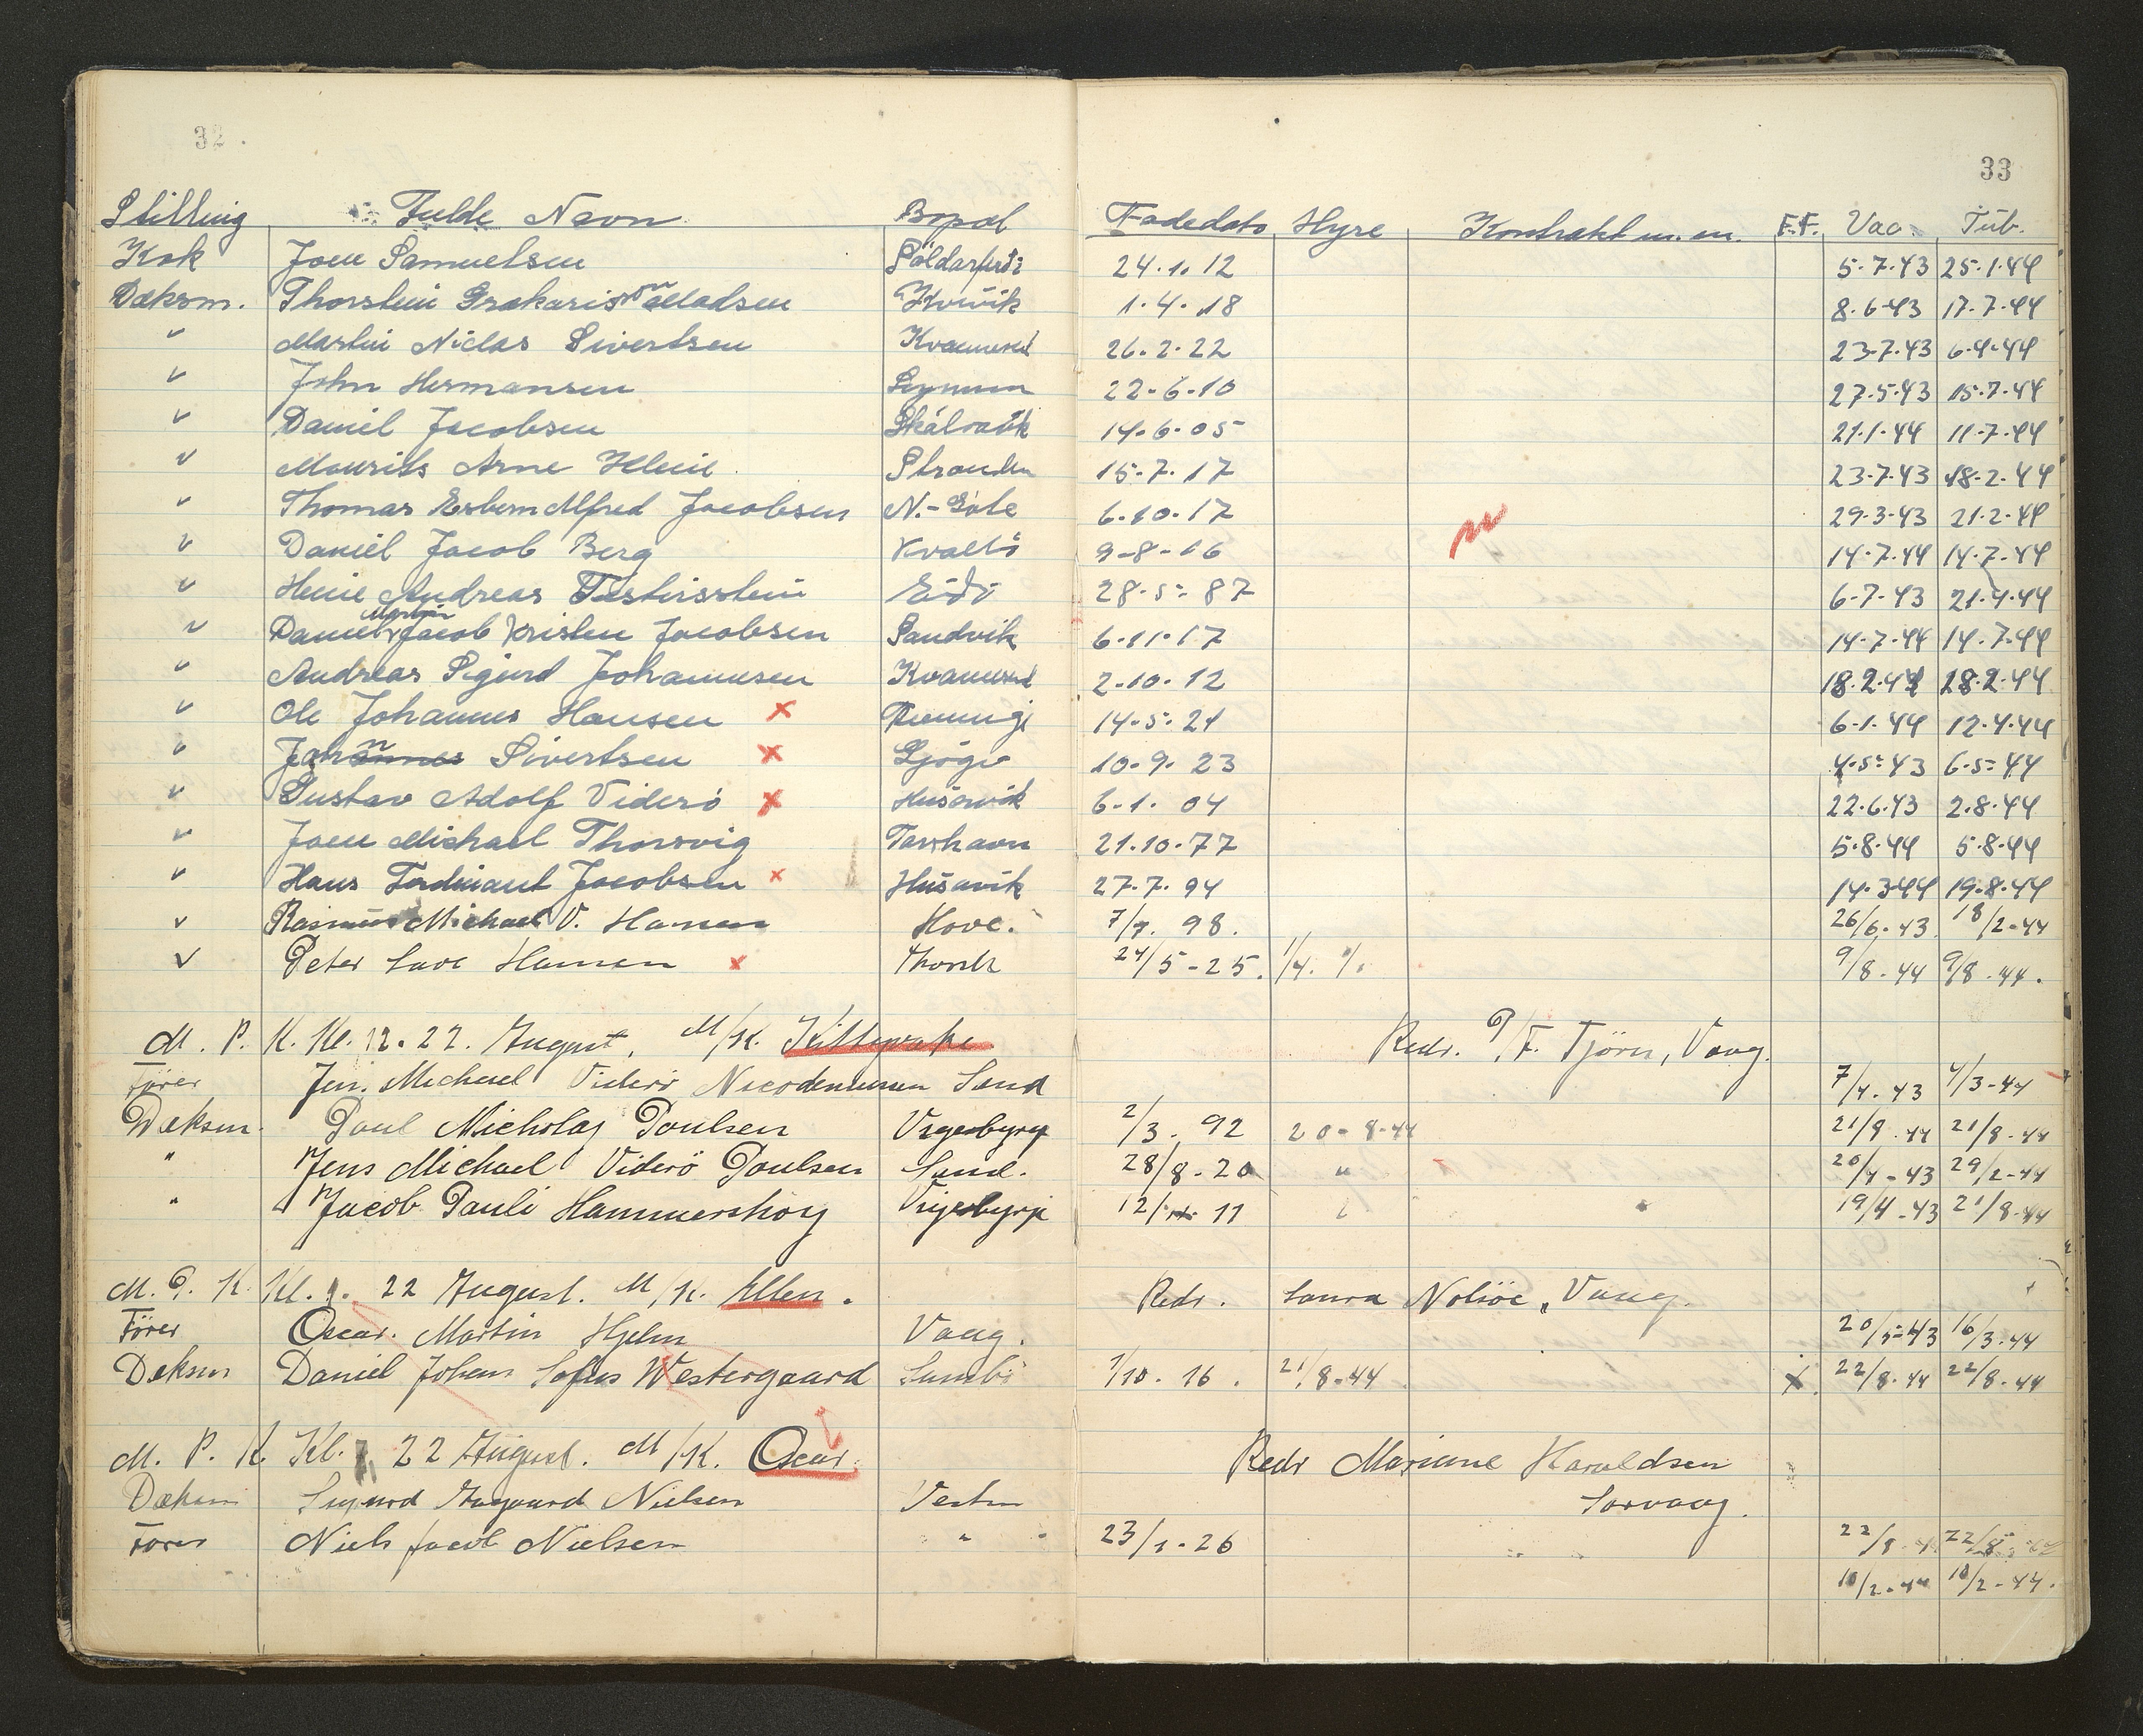 32. 33
Stilling Fulde Navn Bopæl Fødedato Hyre Kontrakt m. m. F.F. Vac. Tub.
Kok Joen Samuelsen Söldarfirði 24.1.12 5-7-43 25-1-44
Dæksm. Thorstein Madsen Kvívík 1.4.18 8-6-43 17-7-44
" Martin Niclas Sivertsen Kvannesund 26-2-22 23-7-43 6-4-44
" John Hermansen 22-6-10 27-5-43 15-7-44
" Daniel Jacobsen Skálavík 14-6-05 21-1-44 11-7-44
" Mourits Arne Heine Stranden 15-7-17 23-7-43 18-2-44
" Thomas Esbern Alfred Jacobsen N.-Göte 6-10-17 29-3-43 21-2-44
" Daniel Jacob Berg Kvalbö 9-8-16 14-7-44 14-7-44
" Heine Andreas Eidi 28-5-87 6-7-43 21-4-44
" Daniel Martin Jacob Kristen Jacobsen Sandvik 6-11-17 14-7-44 14-7-44
" Andreas Sigurd Johannesen Kvannesund 2-10-12 18-2-44 28-2-44
" Ole Johannes Hansen x 14-5-21 6-1-44 12-4-44
" Johannes Sivertsen x Gjógv 10-9-23 4-5-43 6-5-44
" Gustav Adolf Viderö x Húsavík 6-1-04 22-6-43 2-8-44
" Joen Michael Thorsvig Torshavn 21-10-77 5-8-44 5-8-44
" Hans Ferdinant Jacobsen x Húsavík 27-7-94 14-3-44 19-8-44
" Rasmus Michael V. Hansen Hove. 7/7. 98. 26/6-43 18/2-44
" Peter Hansen x Thorsh 24/5-25. 1/4. 9/8-44 9/8-44.
M. P. K. Kl. 12. 22. August, M/K. Kittiwake Redr. P/F. Tjörn, Vaag.
Förer Jens Michael Viderö Nicodemussen Sand 7/4-43 4/3-44
Dæksm. Poul Nicholaj Poulsen 2/3-92 20-8-44 21/8-44 21/8-44
" Jens Michael Viderö Poulsen Sand. 28/8-20 " 20/4-43 29/2-44
" Jacob Pauli Hammershöy 12/11 19/4-43 21/8-44
M. P. K. Kl. 22 August. M/K. Ellen. Redr. Laura Nolsöe, Vaag.
Förer Oscar Martin Hjelm Vaag. 20/5-43 16/3-44
Dæksm Daniel Johan Sofus Westergaard Sumbö 1/10-16. 21/8-44 x 22/8-44 22/8-44
M. P. K. Kl. 22 August. M/K. Oscar. Redr Mariane Haraldsen
Dæksm Sigurd Aagaard Nielsen Vestm Sorvaag.
Förer Niels Jacob Nielsen " 23/1-26 22/8 22/8
10/2-44 10/2-44.